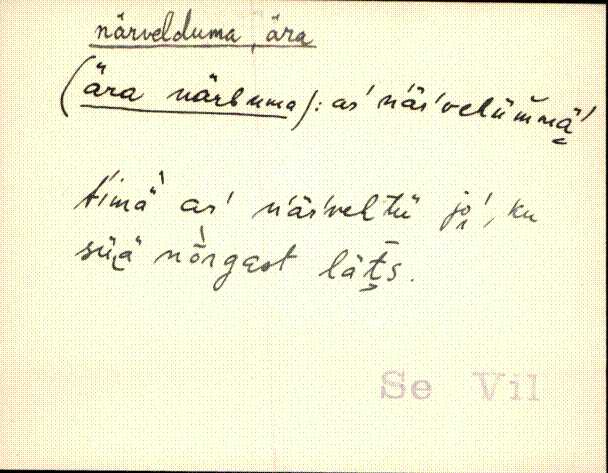 närvelduma, ära
(ära närbuma): aś näŕvelümmä
timä aś näŕveltü jo, ku
süä nõrgast läts.
Se Vil